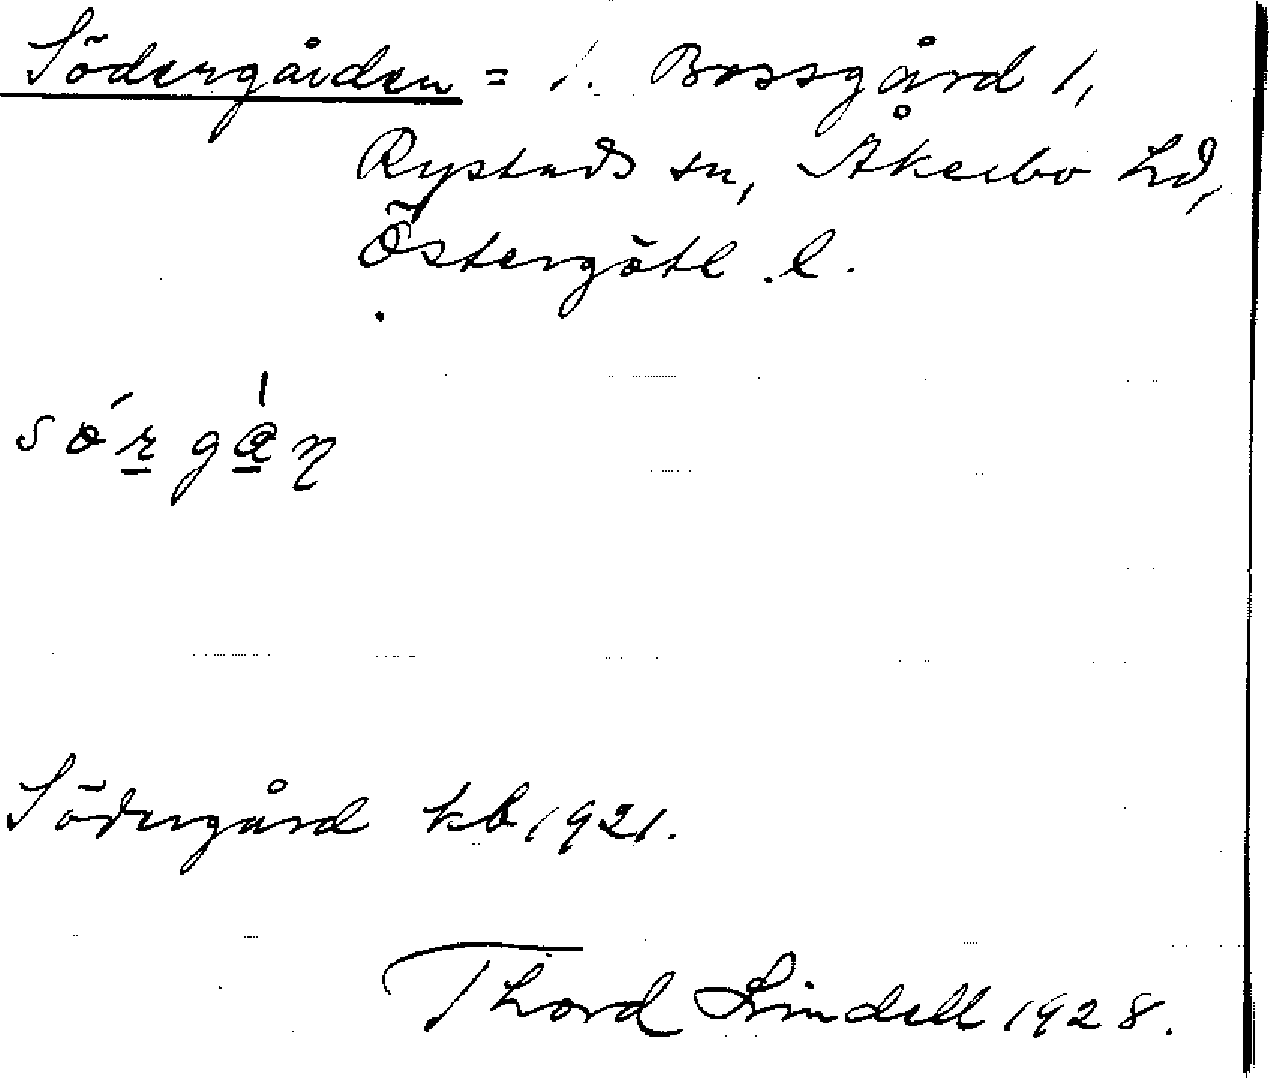 Södergården = 1. Bossgård 1,
Rystads sn, Åkerbo hd,
Östergötl. l.
Södergård kb 1921.
Thord Lindell 1928.